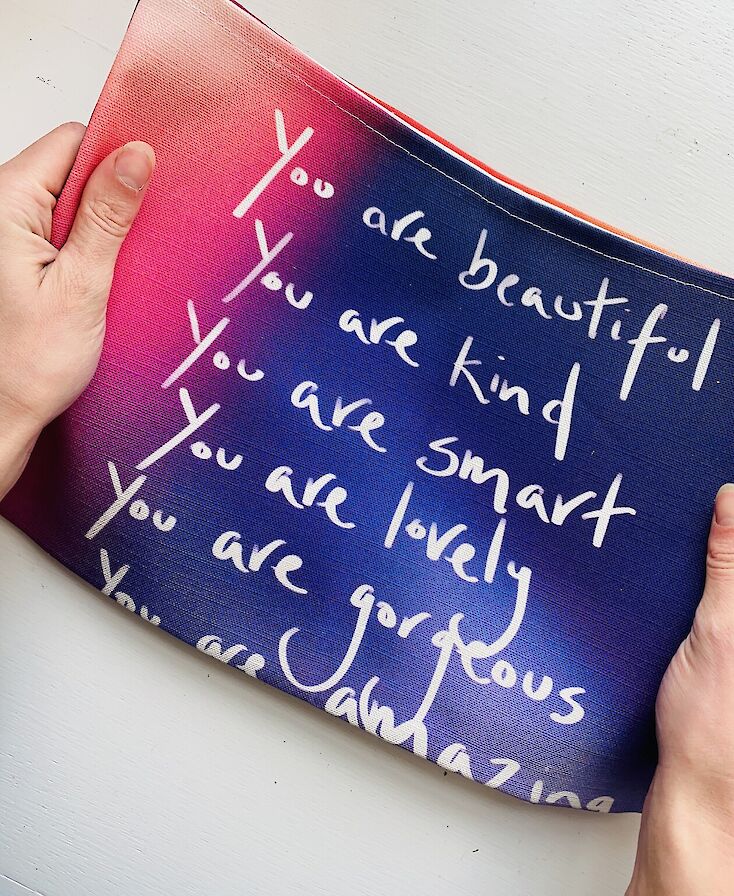 You are beautiful
You are kind
You are smart
You are lovely
You are gorgeous
You are amazing